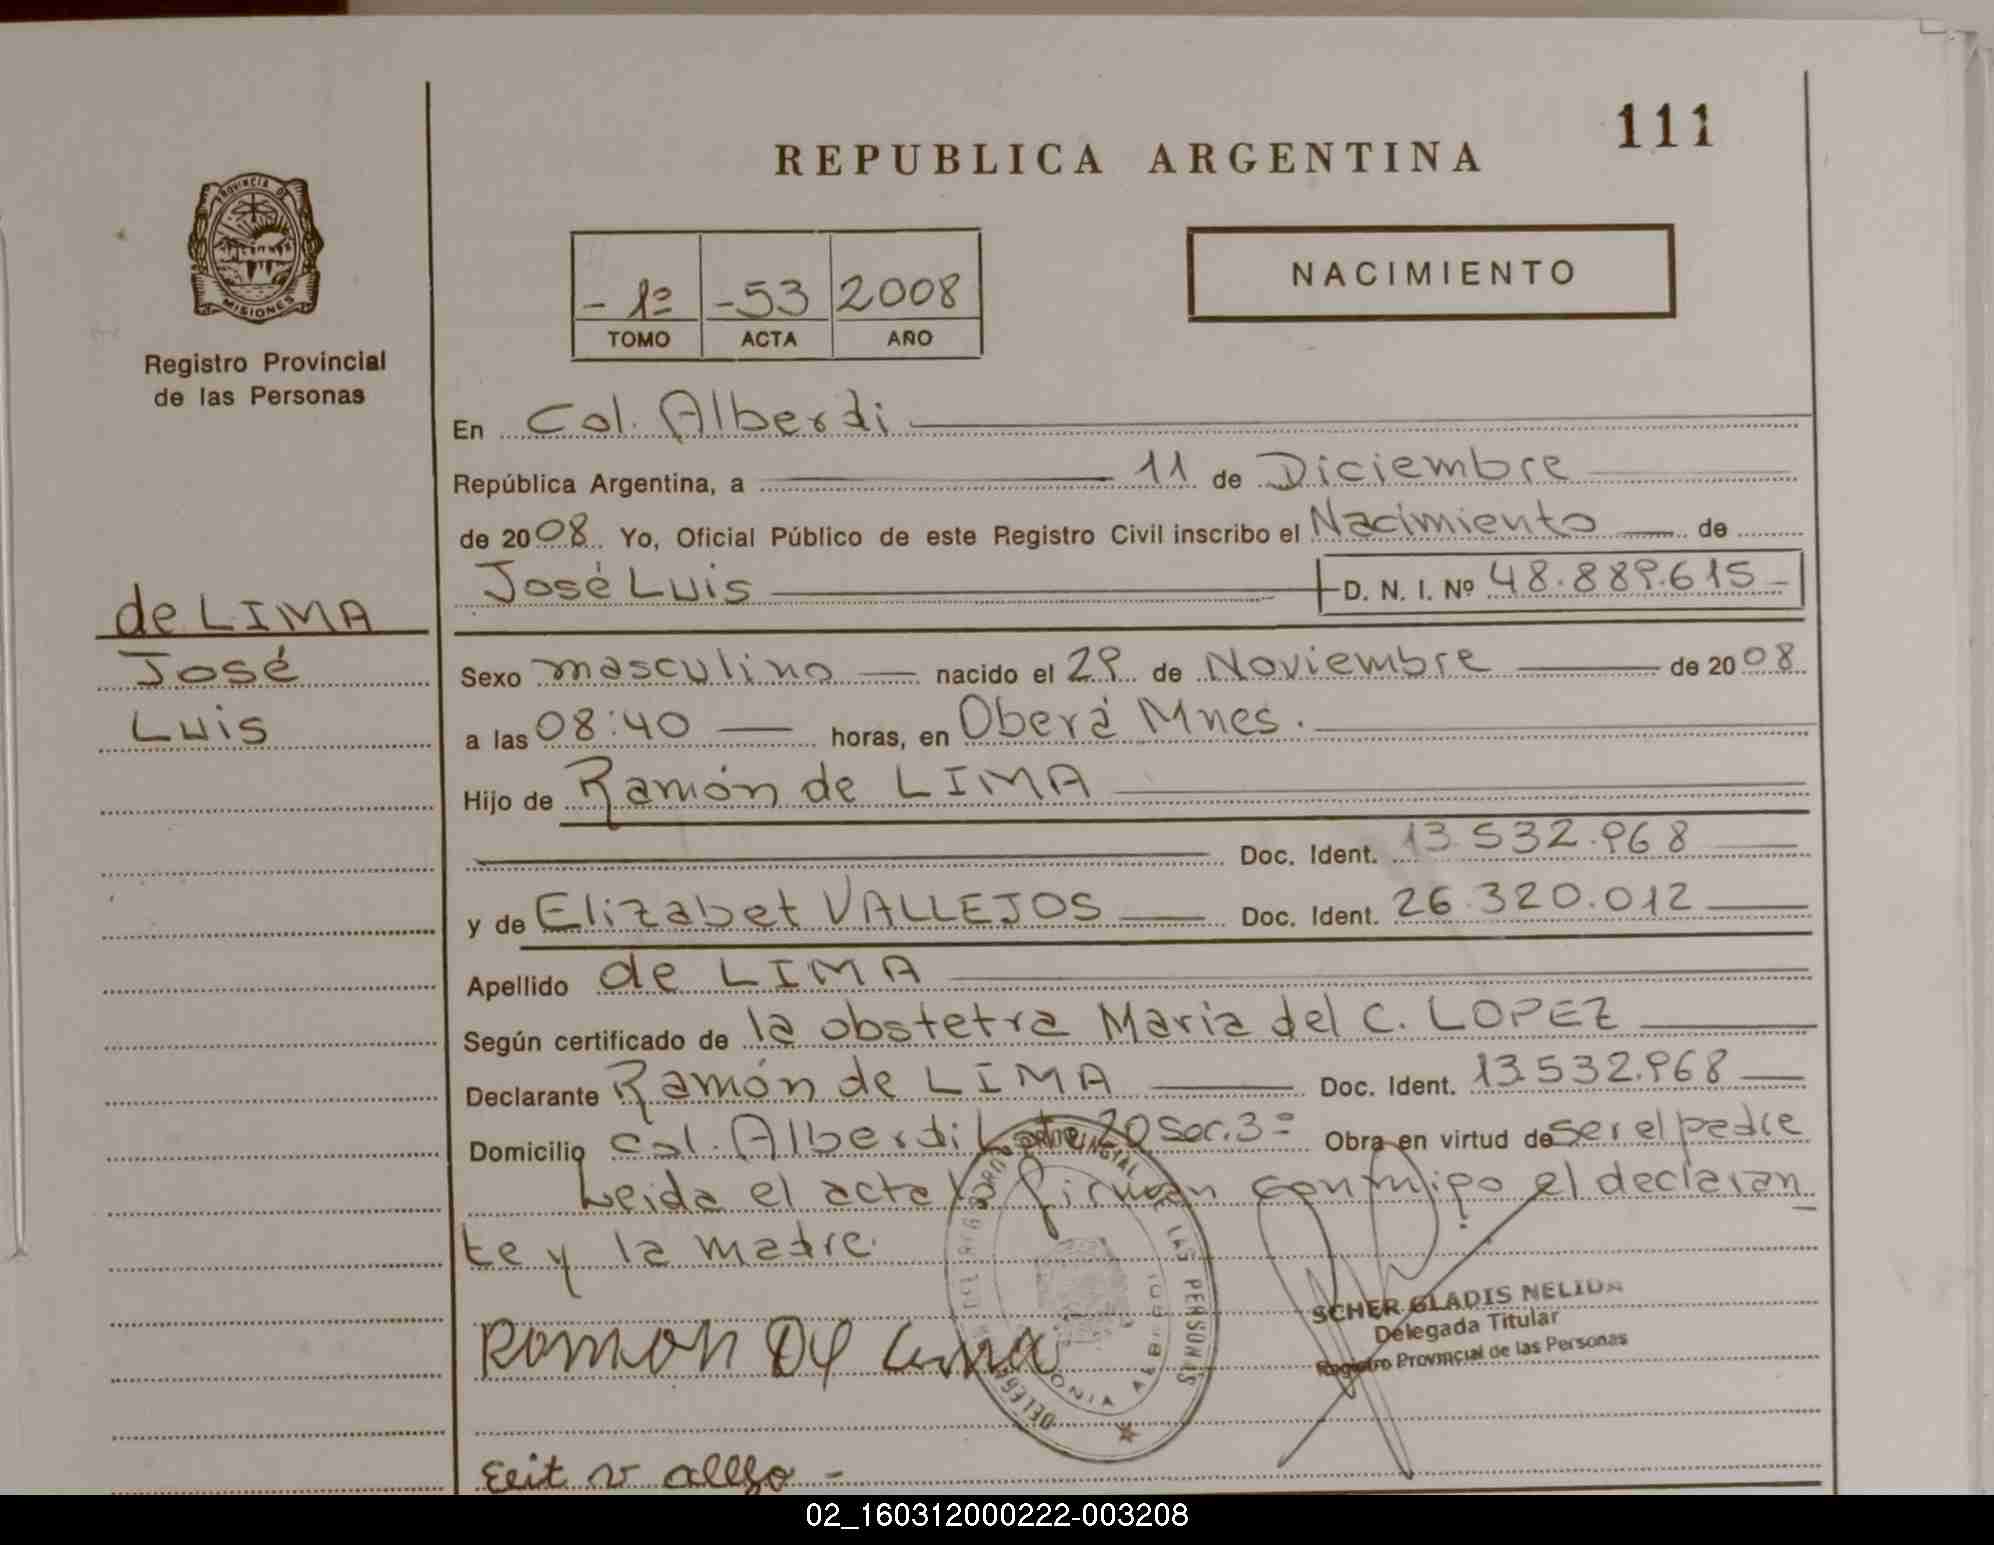 111
REPUBLICA ARGENTINA
PROVINCIA DE
MISIONES
Registro Provincial
de las Personas
- 1º -53 2008
TOMO ACTA AÑO
NACIMIENTO
En Col. Alberdi
República Argentina, a 11 de Diciembre
de 2008. Yo, Oficial Público de este Registro Civil inscribo el Nacimiento de
José Luis D. N. I. Nº 48.889.615-
de LIMA
José
Luis
Sexo masculino nacido el 29 de Noviembre de 2008
a las 08:40 horas, en Oberá Mnes.
Hijo de Ramón de LIMA
Doc. Ident. 13.532.968
y de Elizabet VALLEJOS Doc. Ident. 26.320.012
Apellido de LIMA
Según certificado de la obstetra Maria del C. LOPEZ
Declarante Ramón de LIMA Doc. Ident. 13.532.968
Domicilio Col. Alberdi Lote 20 Sec. 3º Obra en virtud de ser el padre
Leida el acta la firman conmigo el declaran
te y la madre.
Ramon De Lima
SCHER GLADIS NELIDA
Delegada Titular
Registro Provincial de las Personas
02_160312000222-003208